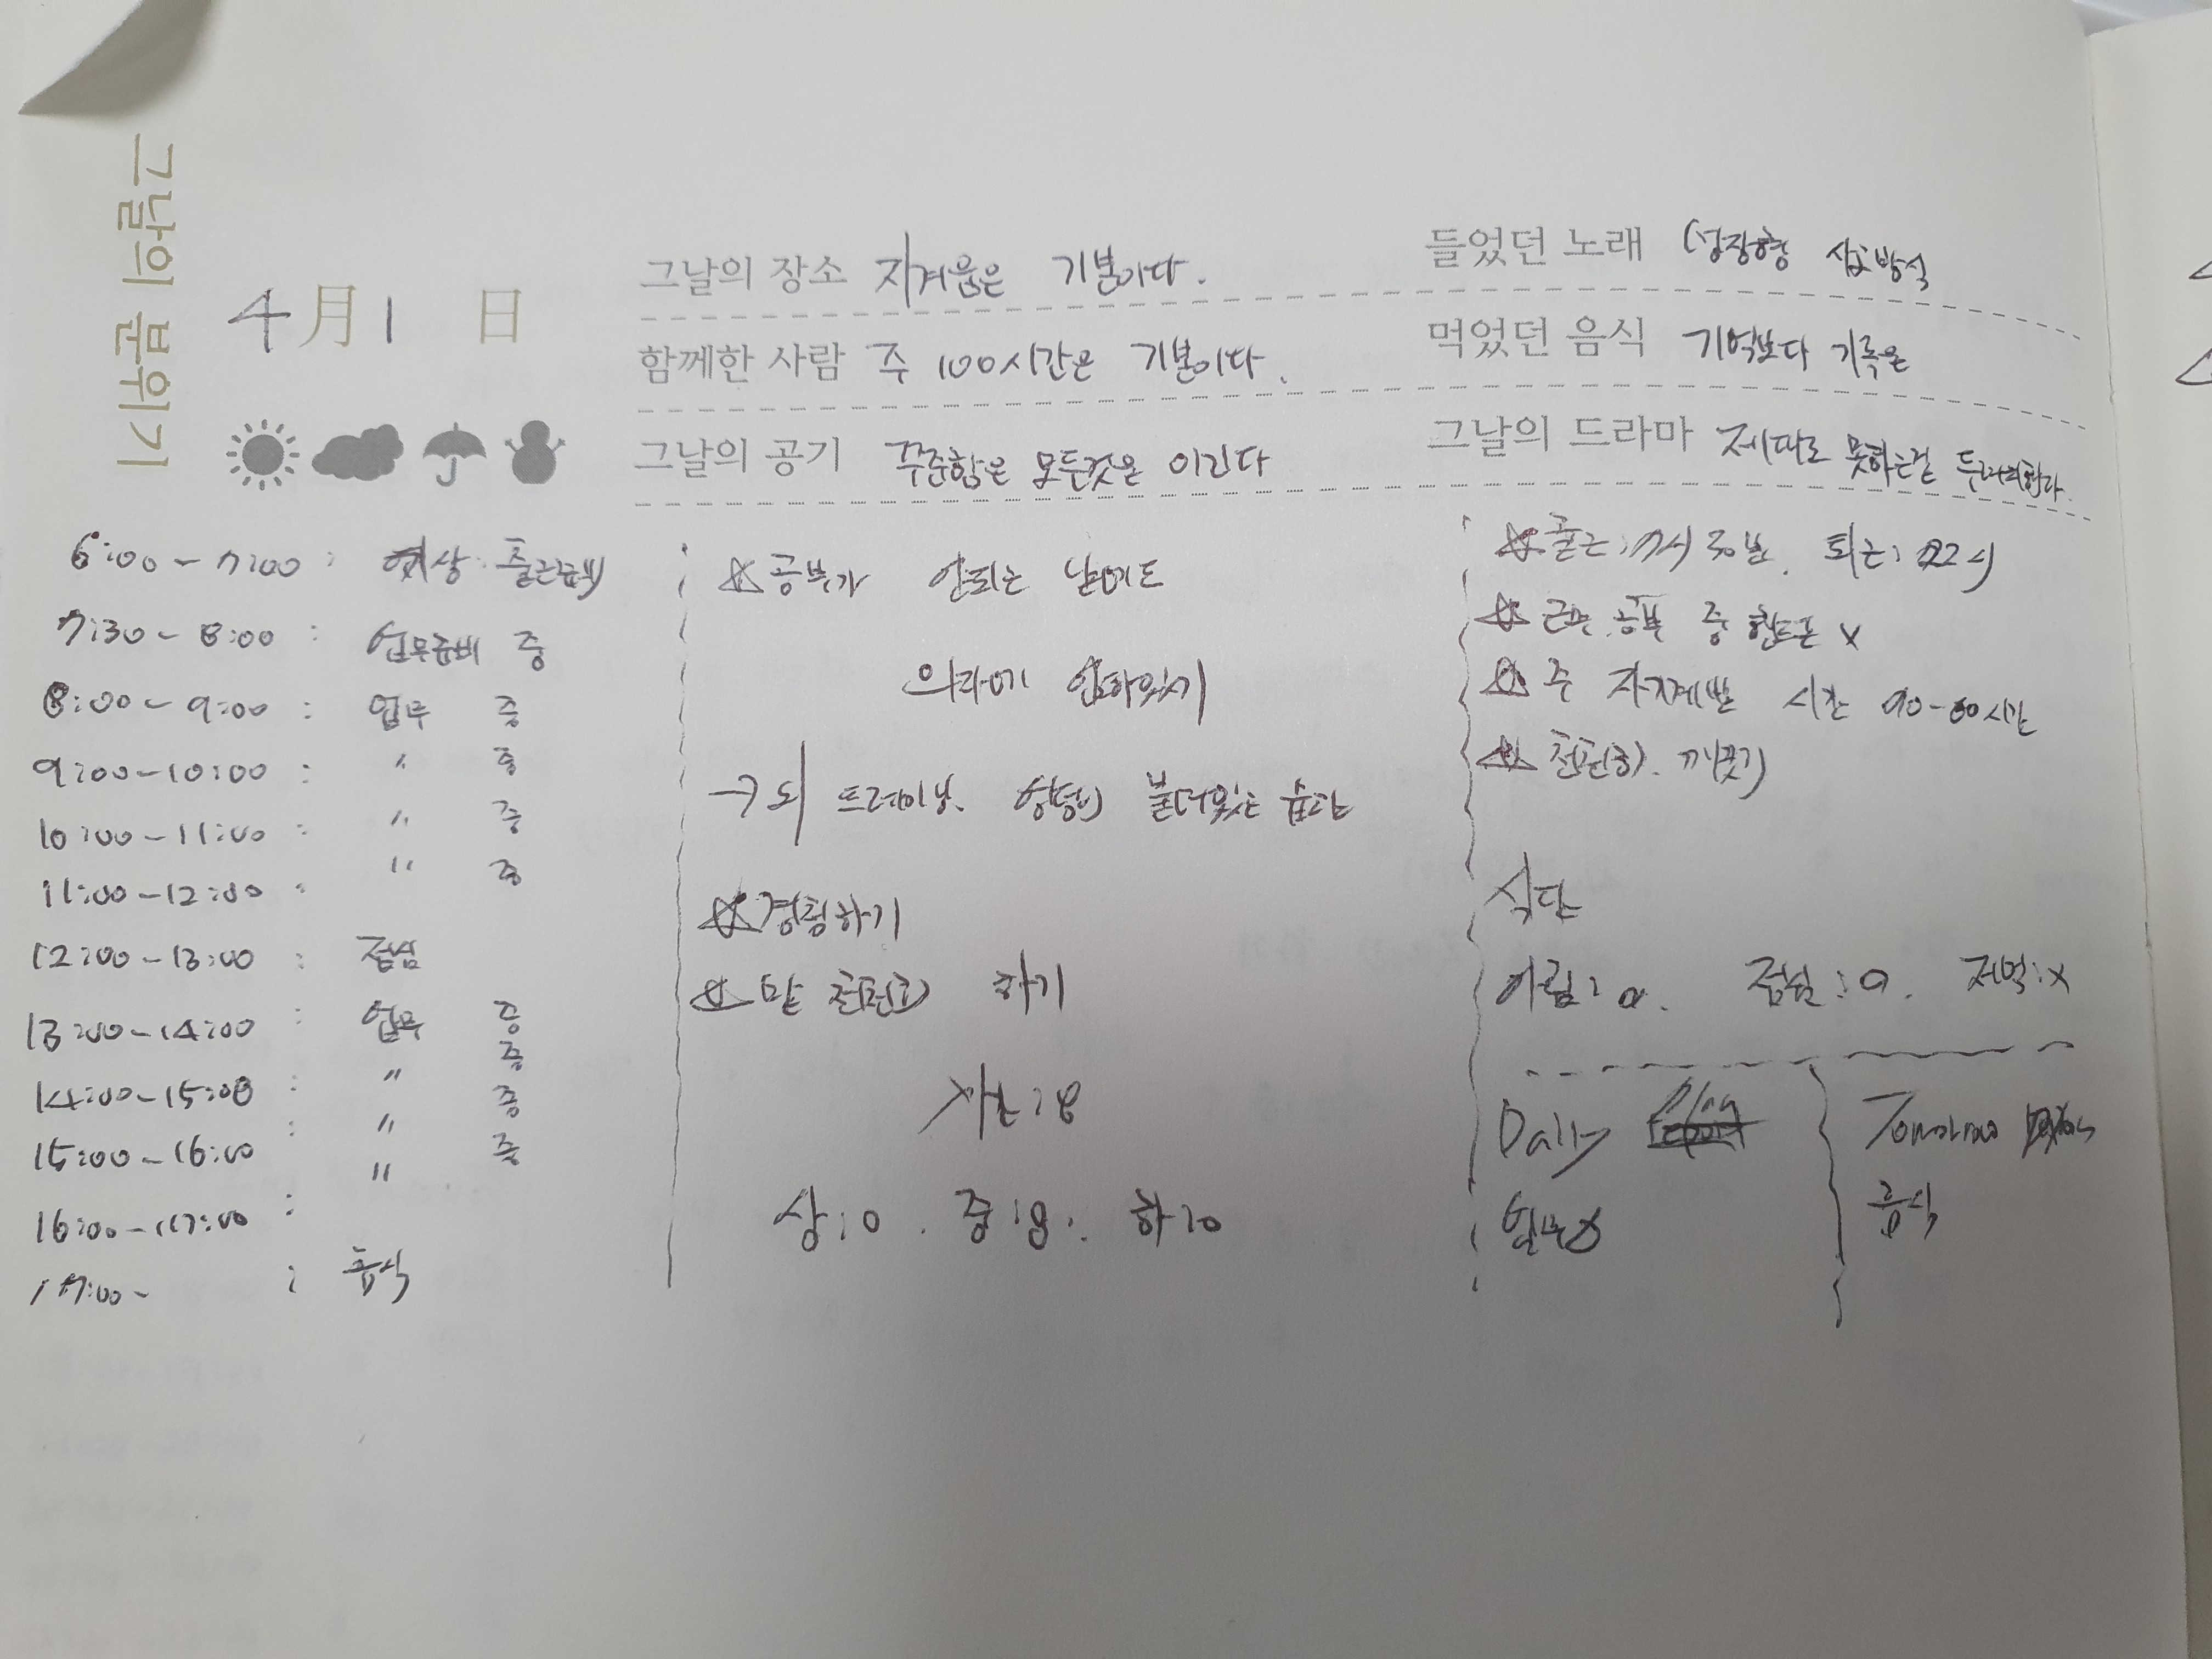 그날의 분위기
4月 1日
그날의 장소 지겨움은 기본이다.
함께한 사람 주 100시간은 기본이다.
그날의 공기 꾸준함은 모든것은 이긴다
들었던 노래 성장형 사고방식
먹었던 음식 기억보다 기록을
그날의 드라마 제대로 못하는걸 두려워하라.
6:00 - 7:00 : 기상. 출근준비
7:30 - 8:00 : 업무준비 중
8:00 - 9:00 : 업무 중
9:00 - 10:00 : " 중
10:00 - 11:00 : " 중
11:00 - 12:00 : " 중
12:00 - 13:00 : 점심
13:00 - 14:00 : 업무 중
14:00 - 15:00 : " 중
15:00 - 16:00 : " 중
16:00 - 17:00 : " 중
17:00 - : 휴식
☆ 공부가 안되는 날에도
의자에 앉아있기
→ 뇌 트레이닝. 엉덩이 붙여있는 습관
☆ 경청하기
☆ 말 천천히 하기
자는 : 8
상 : 0. 중 : 8. 하 : 0
☆ 출근 : 7시 30분. 퇴근 : 22시
☆ 근무. 공부 중 핸드폰 x
☆ 주 자기계발 시간 90-60시간
☆ 천천히. 깨끗이
식단
아침 : o. 점심 : o. 저녁 : x
Daily
업무
Tomorrow
휴식